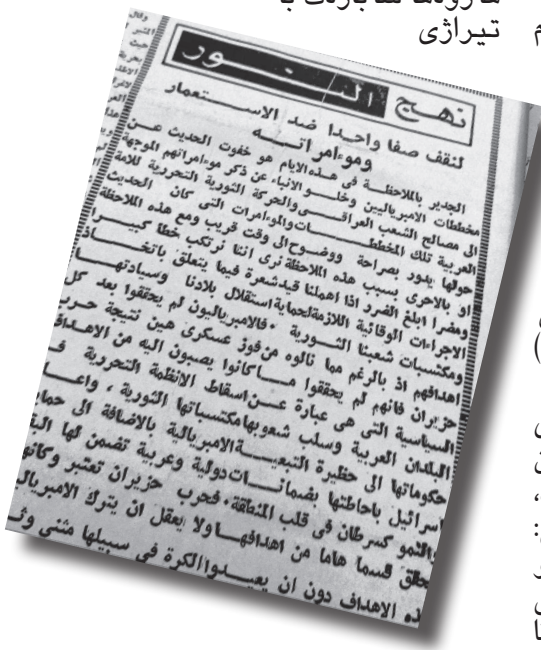 تیراژی
نهج النـــور
لنقف صفا واحدا ضد الاســـتعمار
ومؤامراتـــه
الجدير بالملاحظـــة فى هـذه الايام هو خفوت الحديث عـــن
مخططات الامبرياليين وخلـــو الانباء عن ذكر مؤامراتهم الموجهة
الى مصالح الشعب العراقـــى والحركة الثورية التحررية للامة
العربية تلك المخططـــات والمؤامرات التى كان الحديث
حولها يدور بصراحة ووضوح الى وقت قريب ومع هذه الملاحظة
او بالاحرى بسبب هذه الملاحظة نرى اننا نرتكب خطأ كبيـــرا
ومضرا ابلغ الضرر اذا اهملنا قيد شعرة فيما يتعلق باتخـــاذ
الاجراءات الوقائية اللازمة لحماية استقلال بلادنا وسيادتهـــا
ومكتسبات شعبنا الثـــورية ٠ فالامبرياليون لم يحققوا بعد كل
اهدافهم اذ بالرغم مما نالوه من فوز عسكرى هين نتيجة حرب
حزيران فانهم لم يحققوا مـــا كانوا يصبون اليه من الاهداف
السياسية التى هى عبارة عـــن اسقاط الانظمة التحررية فـ
البلدان العربية وسلب شعوبها مكتسباتها الثورية ، واعـا
حكوماتها الى حظيرة التبعيـــة الامبريالية بالاضافة الى حما
اسرائيل باحاطتها بضمانـــات دولية وعربية تضمن لها البقـ
والنمو كسرطان فى قلب المنطقة ٠ فحرب حزيران تعتبر وكأنها
حقق قسما هاما من اهدافهـــا ولا يعقل ان يترك الامبريالي
ذه الاهداف دون ان يعيـــدوا الكرة فى سبيلها مثنى وثـ